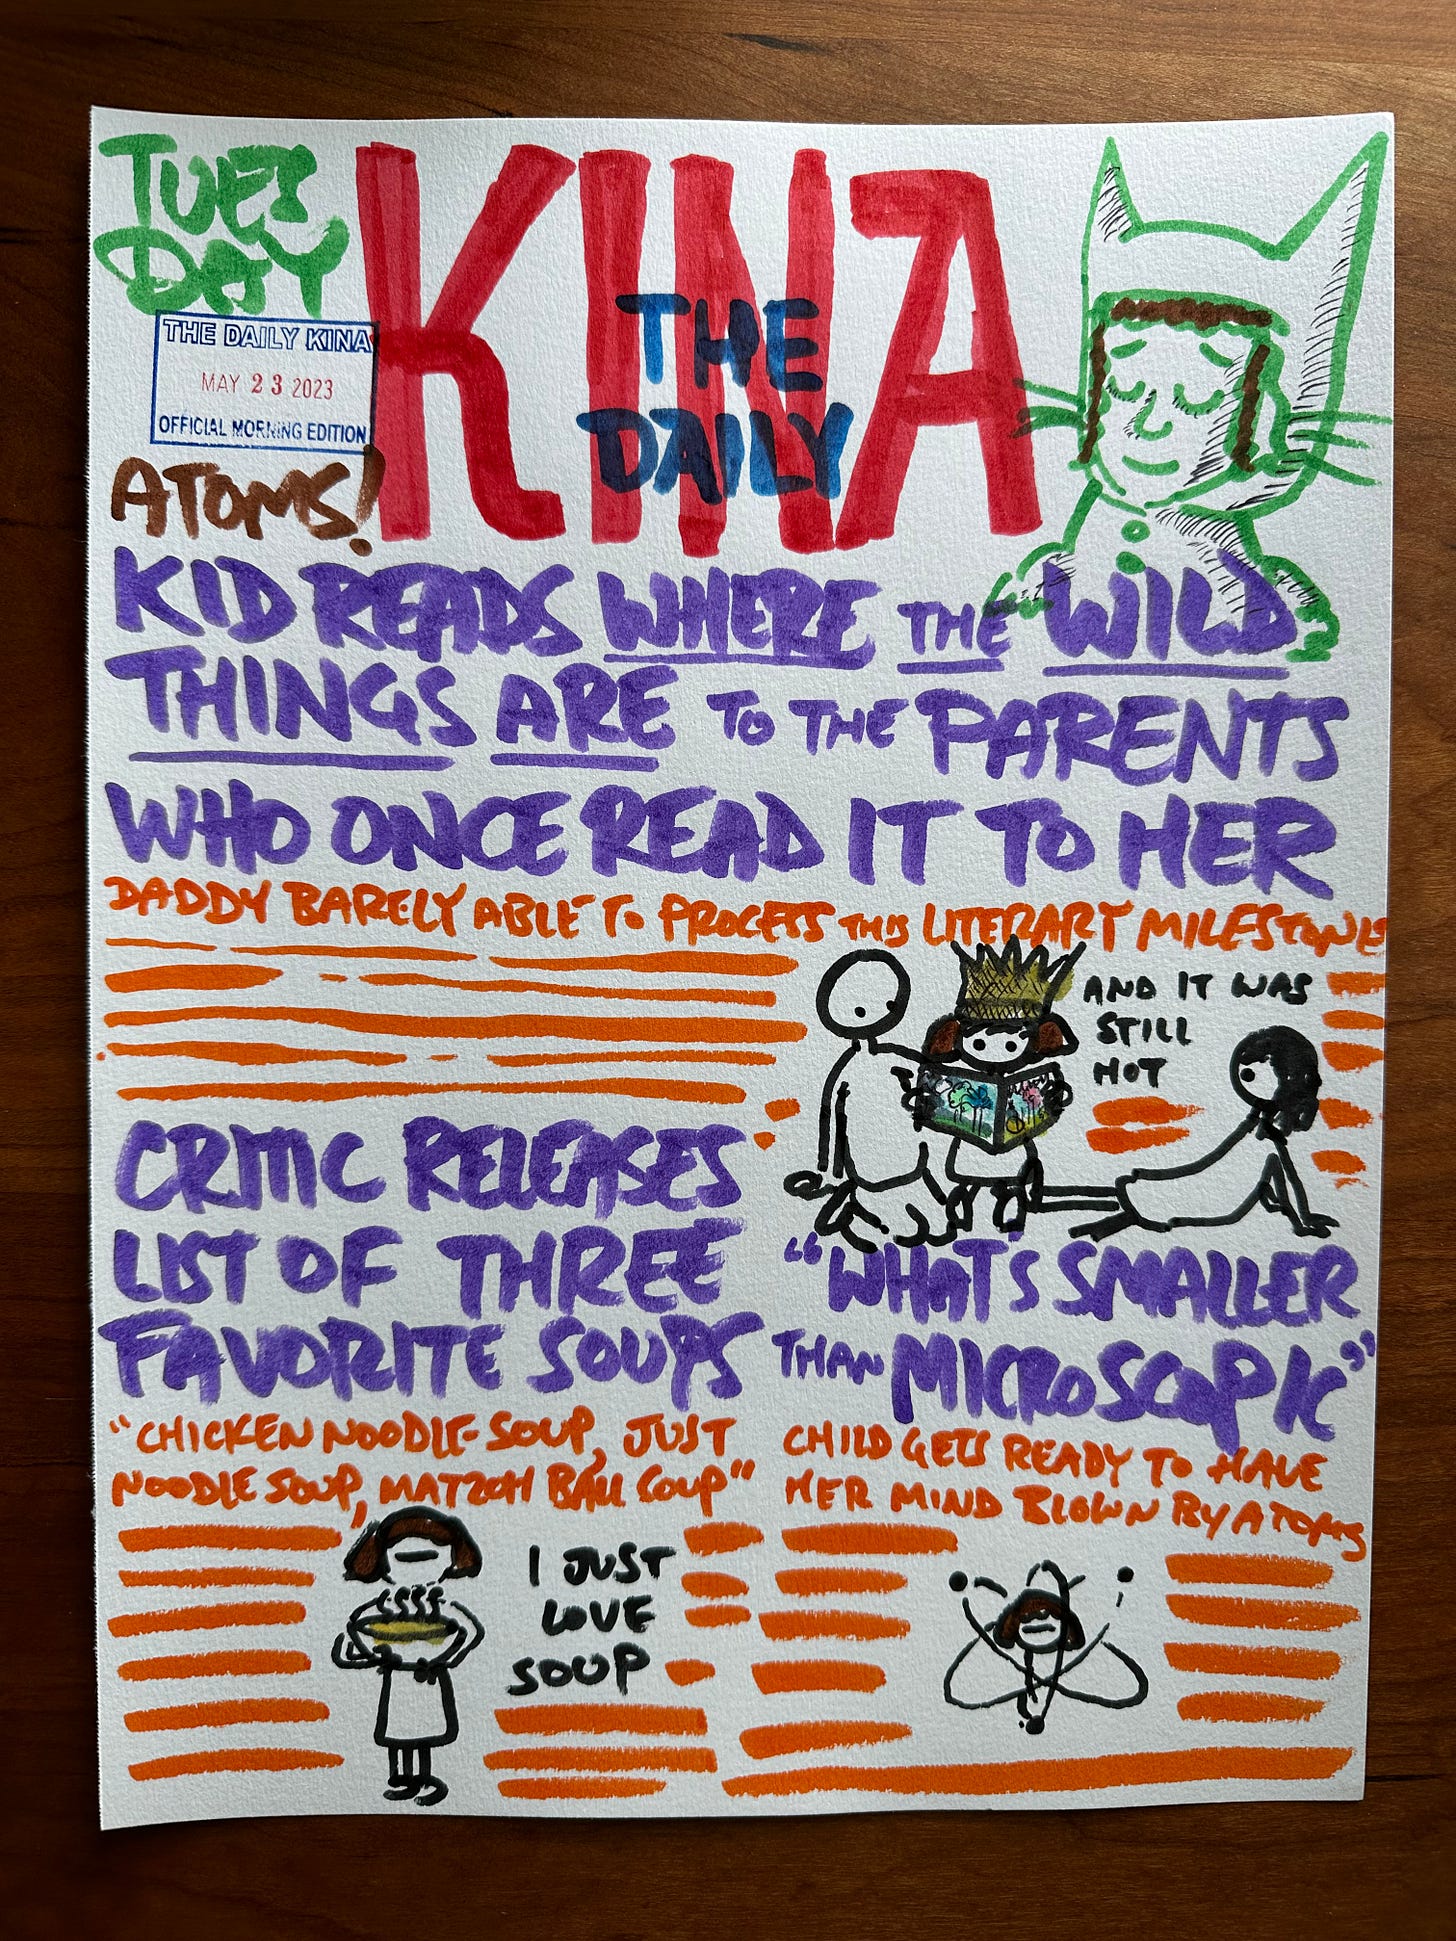 TUES
DAY
KINA
THE
DAILY
THE DAILY KINA
MAY 23 2023
OFFICIAL MORNING EDITION
ATOMS!
KID READS WHERE THE WILD
THINGS ARE TO THE PARENTS
WHO ONCE READ IT TO HER
DADDY BARELY ABLE TO PROCESS THIS LITERARY MILESTONE
AND IT WAS
STILL
HOT
CRITIC RELEASES
LIST OF THREE
FAVORITE SOUPS
"CHICKEN NOODLE SOUP, JUST
NOODLE SOUP, MATZOH BALL SOUP"
I JUST
LOVE
SOUP
"WHAT'S SMALLER
THAN MICROSCOPIC"
CHILD GETS READY TO HAVE
HER MIND BLOWN BY ATOMS